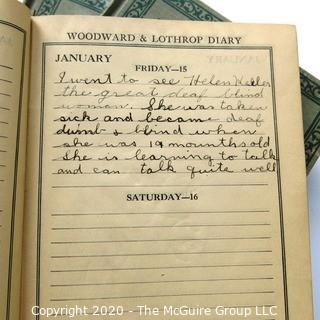 WOODWARD & LOTHROP DIARY
JANUARY
FRIDAY—15
I went to see Helen Keller
the great deaf blind
woman. She was taken
sick and became deaf
dumb & blind when
she was 19 mounths old
She is learning to talk
and can talk quite well
SATURDAY—16
Copyright 2020 - The McGuire Group LLC